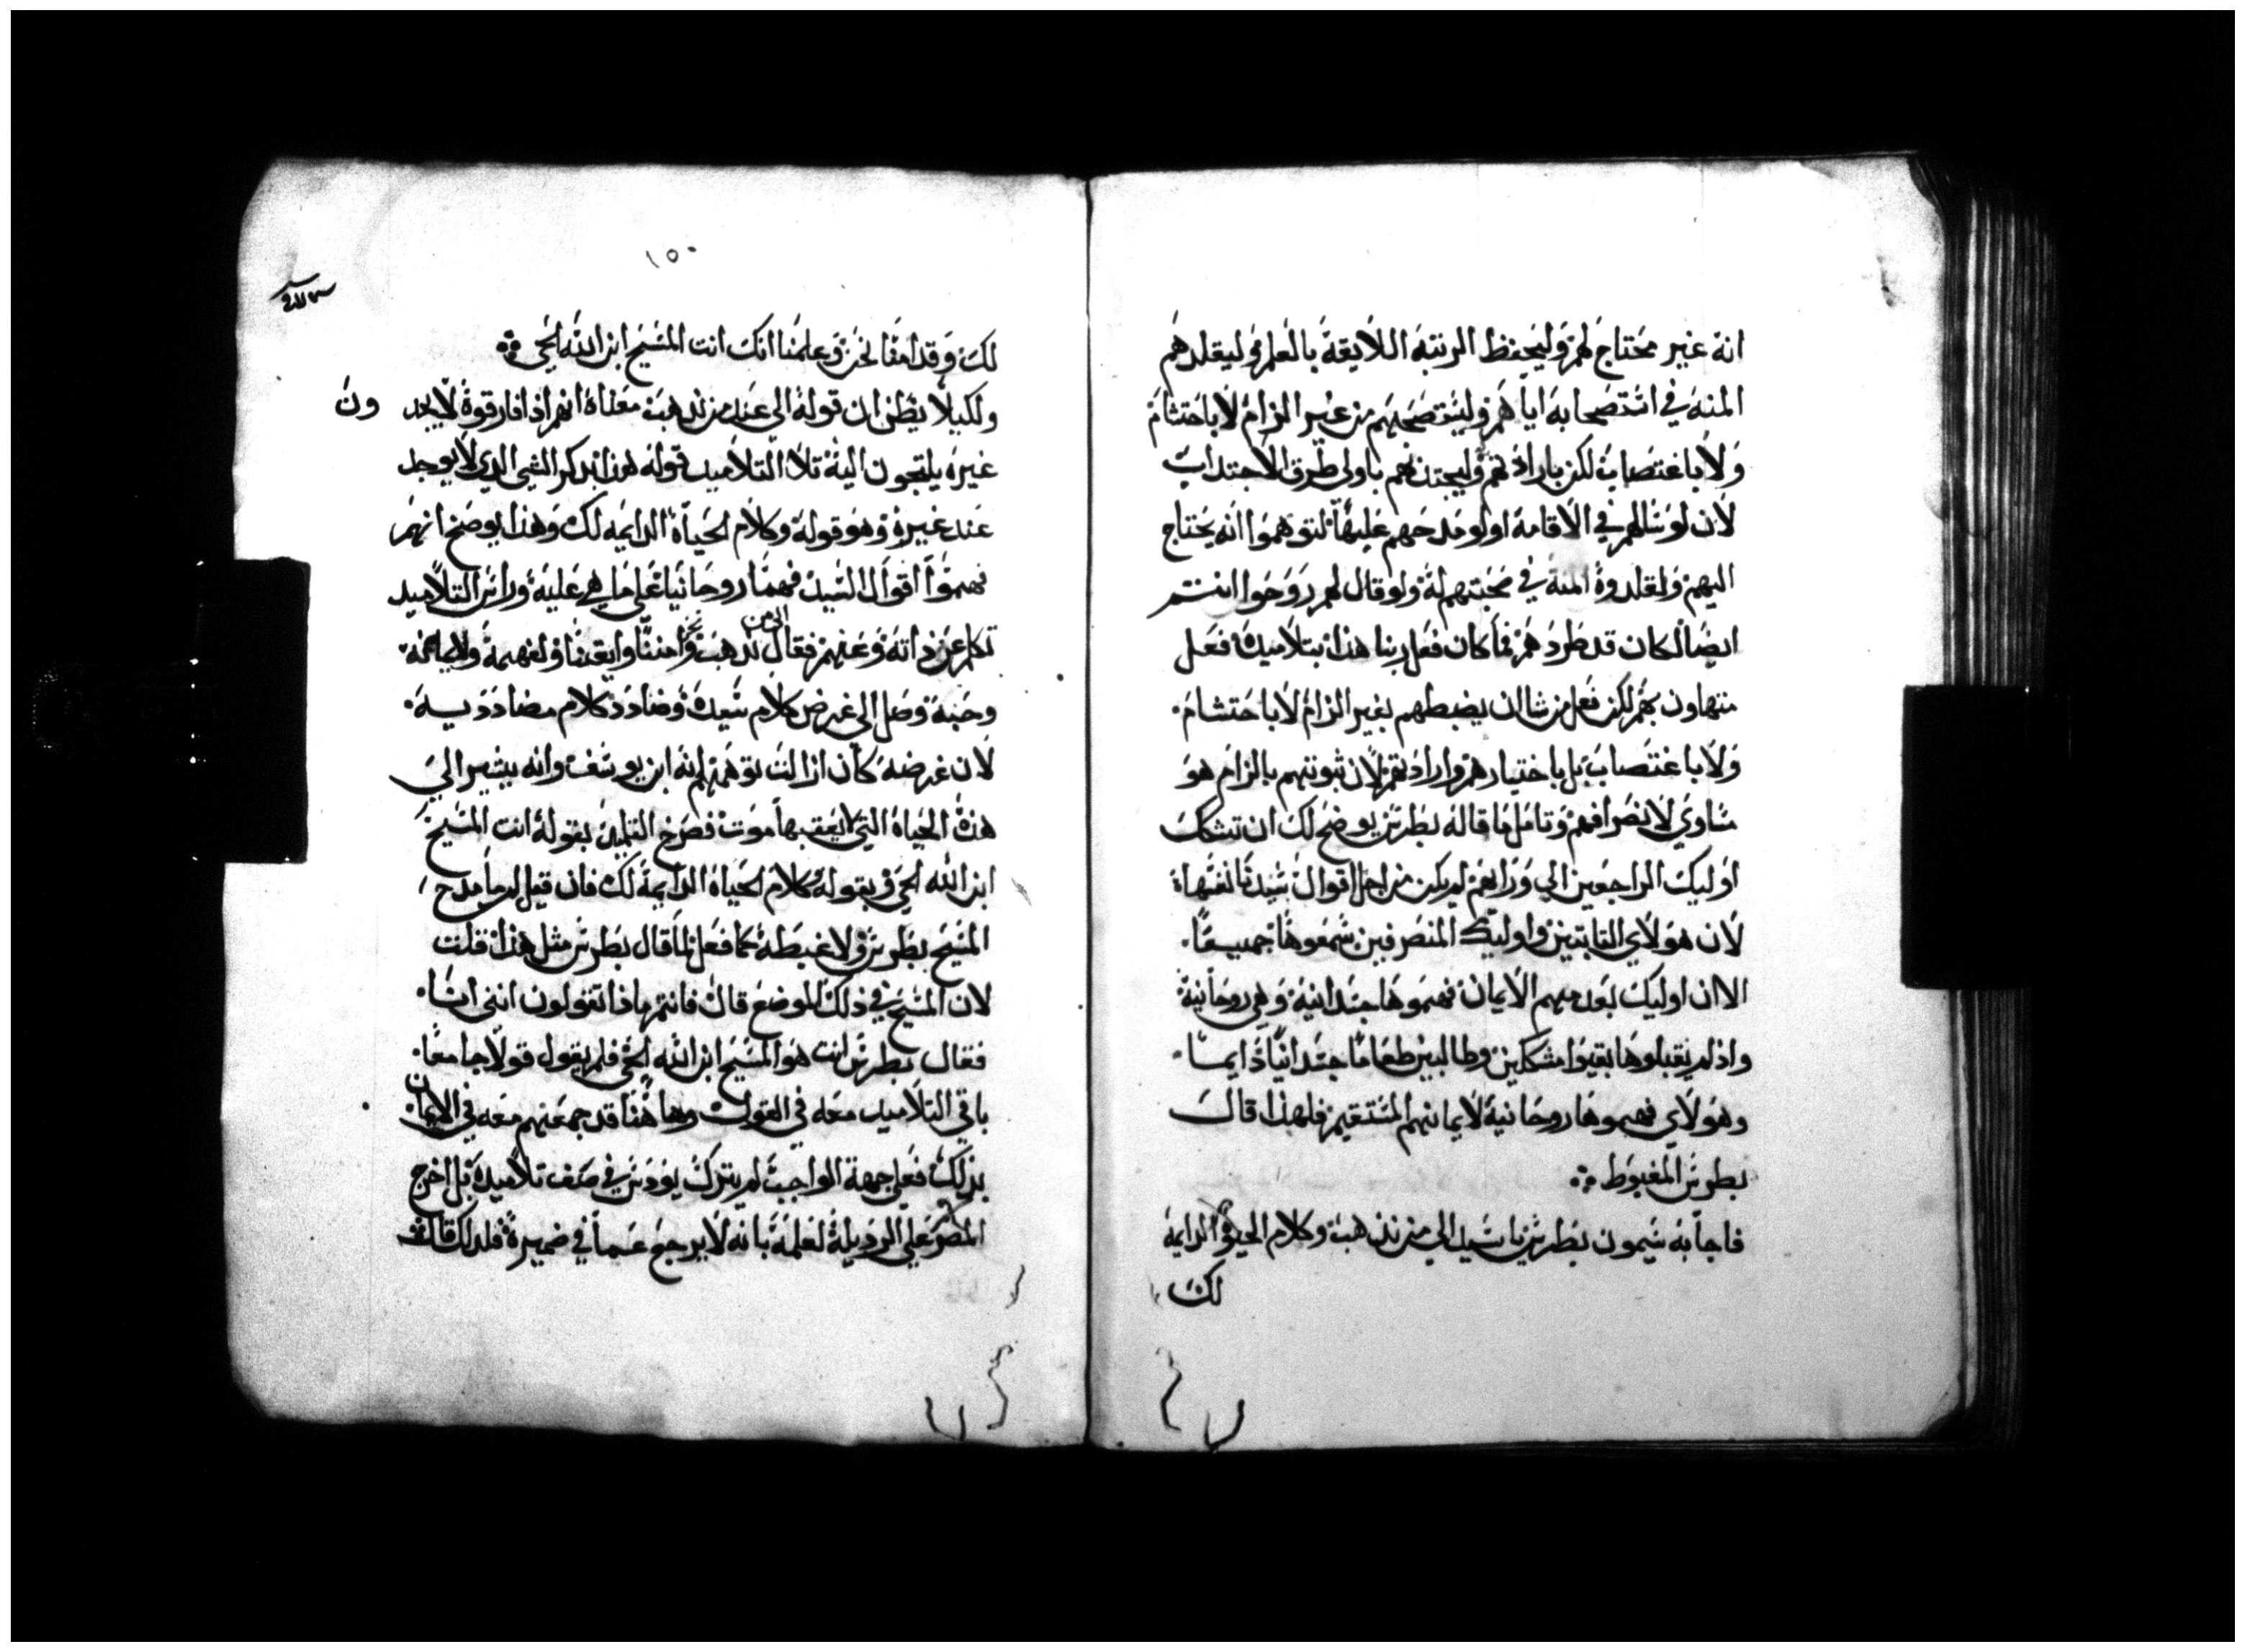 انه غير محتاج لهم وليحفظ الرتبة اللايقة بالعلم وليقلدهم
المنة في استصحابه اياهم وليستصحبهم من غير الزام لا باحتشام
ولا باغتصاب لكن بارادتهم وليجتذبهم باولي طرق الاجتداب
لان لو سالهم في الاقامة او لو مدحهم عليها لتوهموا انه يحتاج
اليهم ولقلدوه المنة في صحبتهم له ولو قال لهم روحوا انتم
ايضا لكان قد طردهم فما كان فعل ربنا هذا بتلاميده فعل
متهاون بهم لكن فعل من شا ان يضبطهم بغير الزام لا باحتشام
ولا باغتصاب بل باختيارهم وارادتهم لان ثبوتهم بالزام هو
مساوي لانصرافهم وتامل ما قاله بطرس يوضح لك ان تشكك
اوليك الراجعين الي ورايهم لم يكن من اجل اقوال سيدنا نفسها
لان هولاي التابتين واوليك المنصرفين سمعوها جميعا
الا ان اوليك بعدمهم الايمان فهموها جسدانية وهي روحانية
واذ لم يقبلوها بقيوا مشككين وطالبين طعاما جسدانيا دايما
وهولاي فهموها روحانية لايمانهم المستقيم فلهذا قال
بطرس المغبوط
فاجابه سيمون بطرس يا سيد الي من نذهب وكلام الحيوة الدايمة
لك
١٥٠
لك وقد امنا نحن وعلمنا انك انت المسيح ابن الله الحي
ولكيلا يظن ان قوله الي عند من نذهب معناه انهم اذا فارقوه لا يجد ون
غيره يلتجون اليه تلا التلاميد قوله هذا بدكر الشي الدي لا يوجد
عند غيره وهو قوله وكلام الحياة الدايمة لك وهذا يوضح انهم
فهموا اقوال السيد فهما روحانيا علي ما هي عليه وراس التلاميد
تكلم عن ذاته وعنهم فقال الي من نذهب نحن وامنا وايقنا ولفهمه ولايمانه
وحبه وصل الي غرض كلام سيده وضادد كلام مضادديه
لان غرضه كان ازالت توهمهم انه ابن يوسف وانه يشير الي
هذه الحياة التي يعقبها موت فصرخ التلميد بقوله انت المسيح
ابن الله الحي وبقوله كلام الحياة الدايمة لك فان قيل لم ما مدح
المسيح بطرس ولا غبطه كما فعل لما قال بطرس مثل هذا قلت
لان المسيح في ذلك الموضع قال فانتم ماذا تقولون انني انا
فقال بطرس انت هو المسيح ابن الله الحي فلم يقول قولا جامعا
باقي التلاميد معه في القول وها هنا قد جمعهم معه في الايمان
بذلك فعلي جهة الواجب لم يترك يودس في صف تلاميده بل اخرج
المصر علي الرديلة لعلمه بانه لا يرجع عما في ضميره فلدلك قال